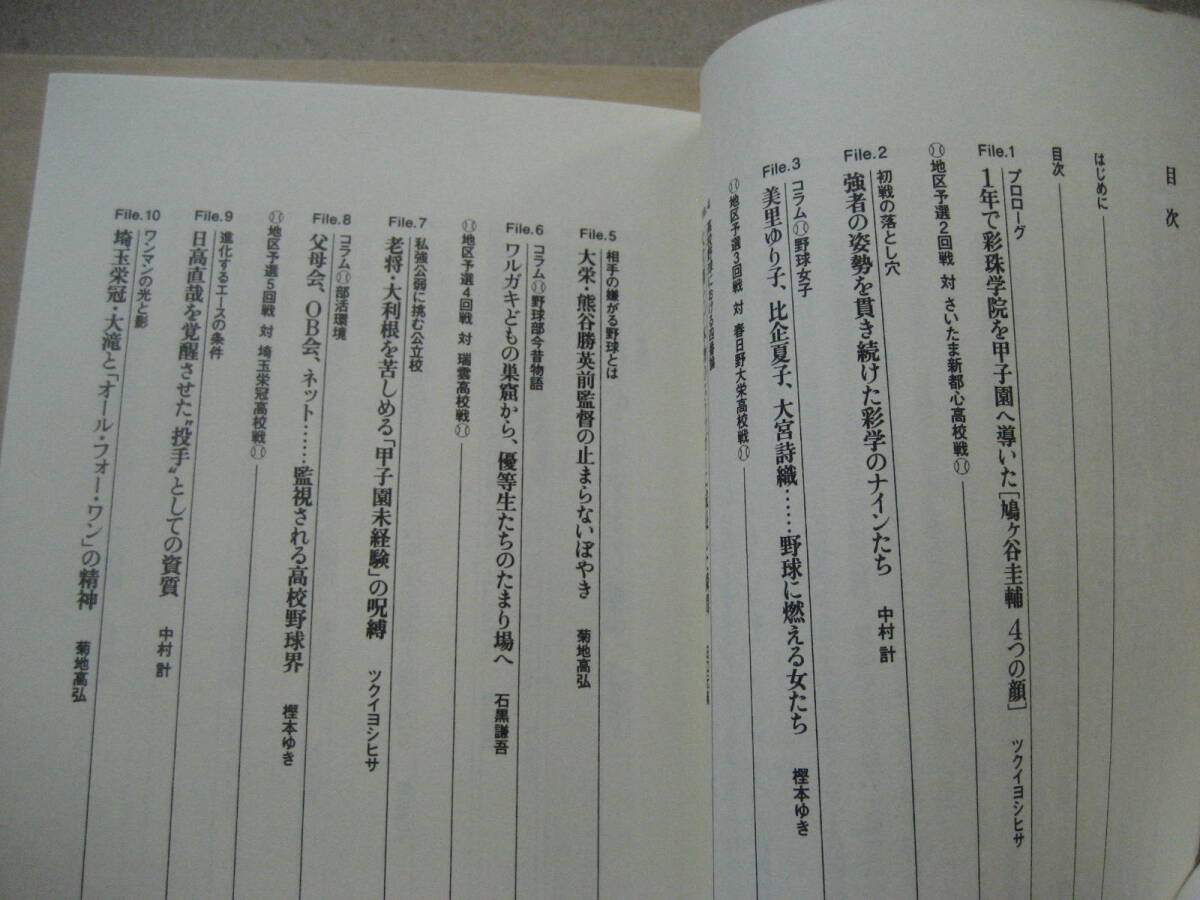 目次
はじめに
目次
File.1
プロローグ
1年で彩珠学院を甲子園へ導いた[鳩ヶ谷圭輔 4つの顔] ツクイヨシヒサ
地区予選2回戦 対 さいたま新都心高校戦
File.2
初戦の落とし穴
強者の姿勢を貫き続けた彩学のナインたち 中村 計
File.3
コラム 野球女子
美里ゆり子、比企夏子、大宮詩織……野球に燃える女たち 樫本ゆき
地区予選3回戦 対 春日野大栄高校戦
File.5
相手の嫌がる野球とは
大栄・熊谷勝英前監督の止まらないぼやき 菊地高弘
File.6
コラム 野球部今昔物語
ワルガキどもの巣窟から、優等生たちのたまり場へ 石黒謙吾
地区予選4回戦 対 瑞雲高校戦
File.7
私強公弱に挑む公立校
老将・大利根を苦しめる「甲子園未経験」の呪縛 ツクイヨシヒサ
File.8
コラム 部活環境
父母会、OB会、ネット……監視される高校野球界 樫本ゆき
地区予選5回戦 対 埼玉栄冠高校戦
File.9
進化するエースの条件
日高直哉を覚醒させた“投手”としての資質 中村 計
File.10
ワンマンの光と影
埼玉栄冠・大滝と「オール・フォー・ワン」の精神 菊地高弘